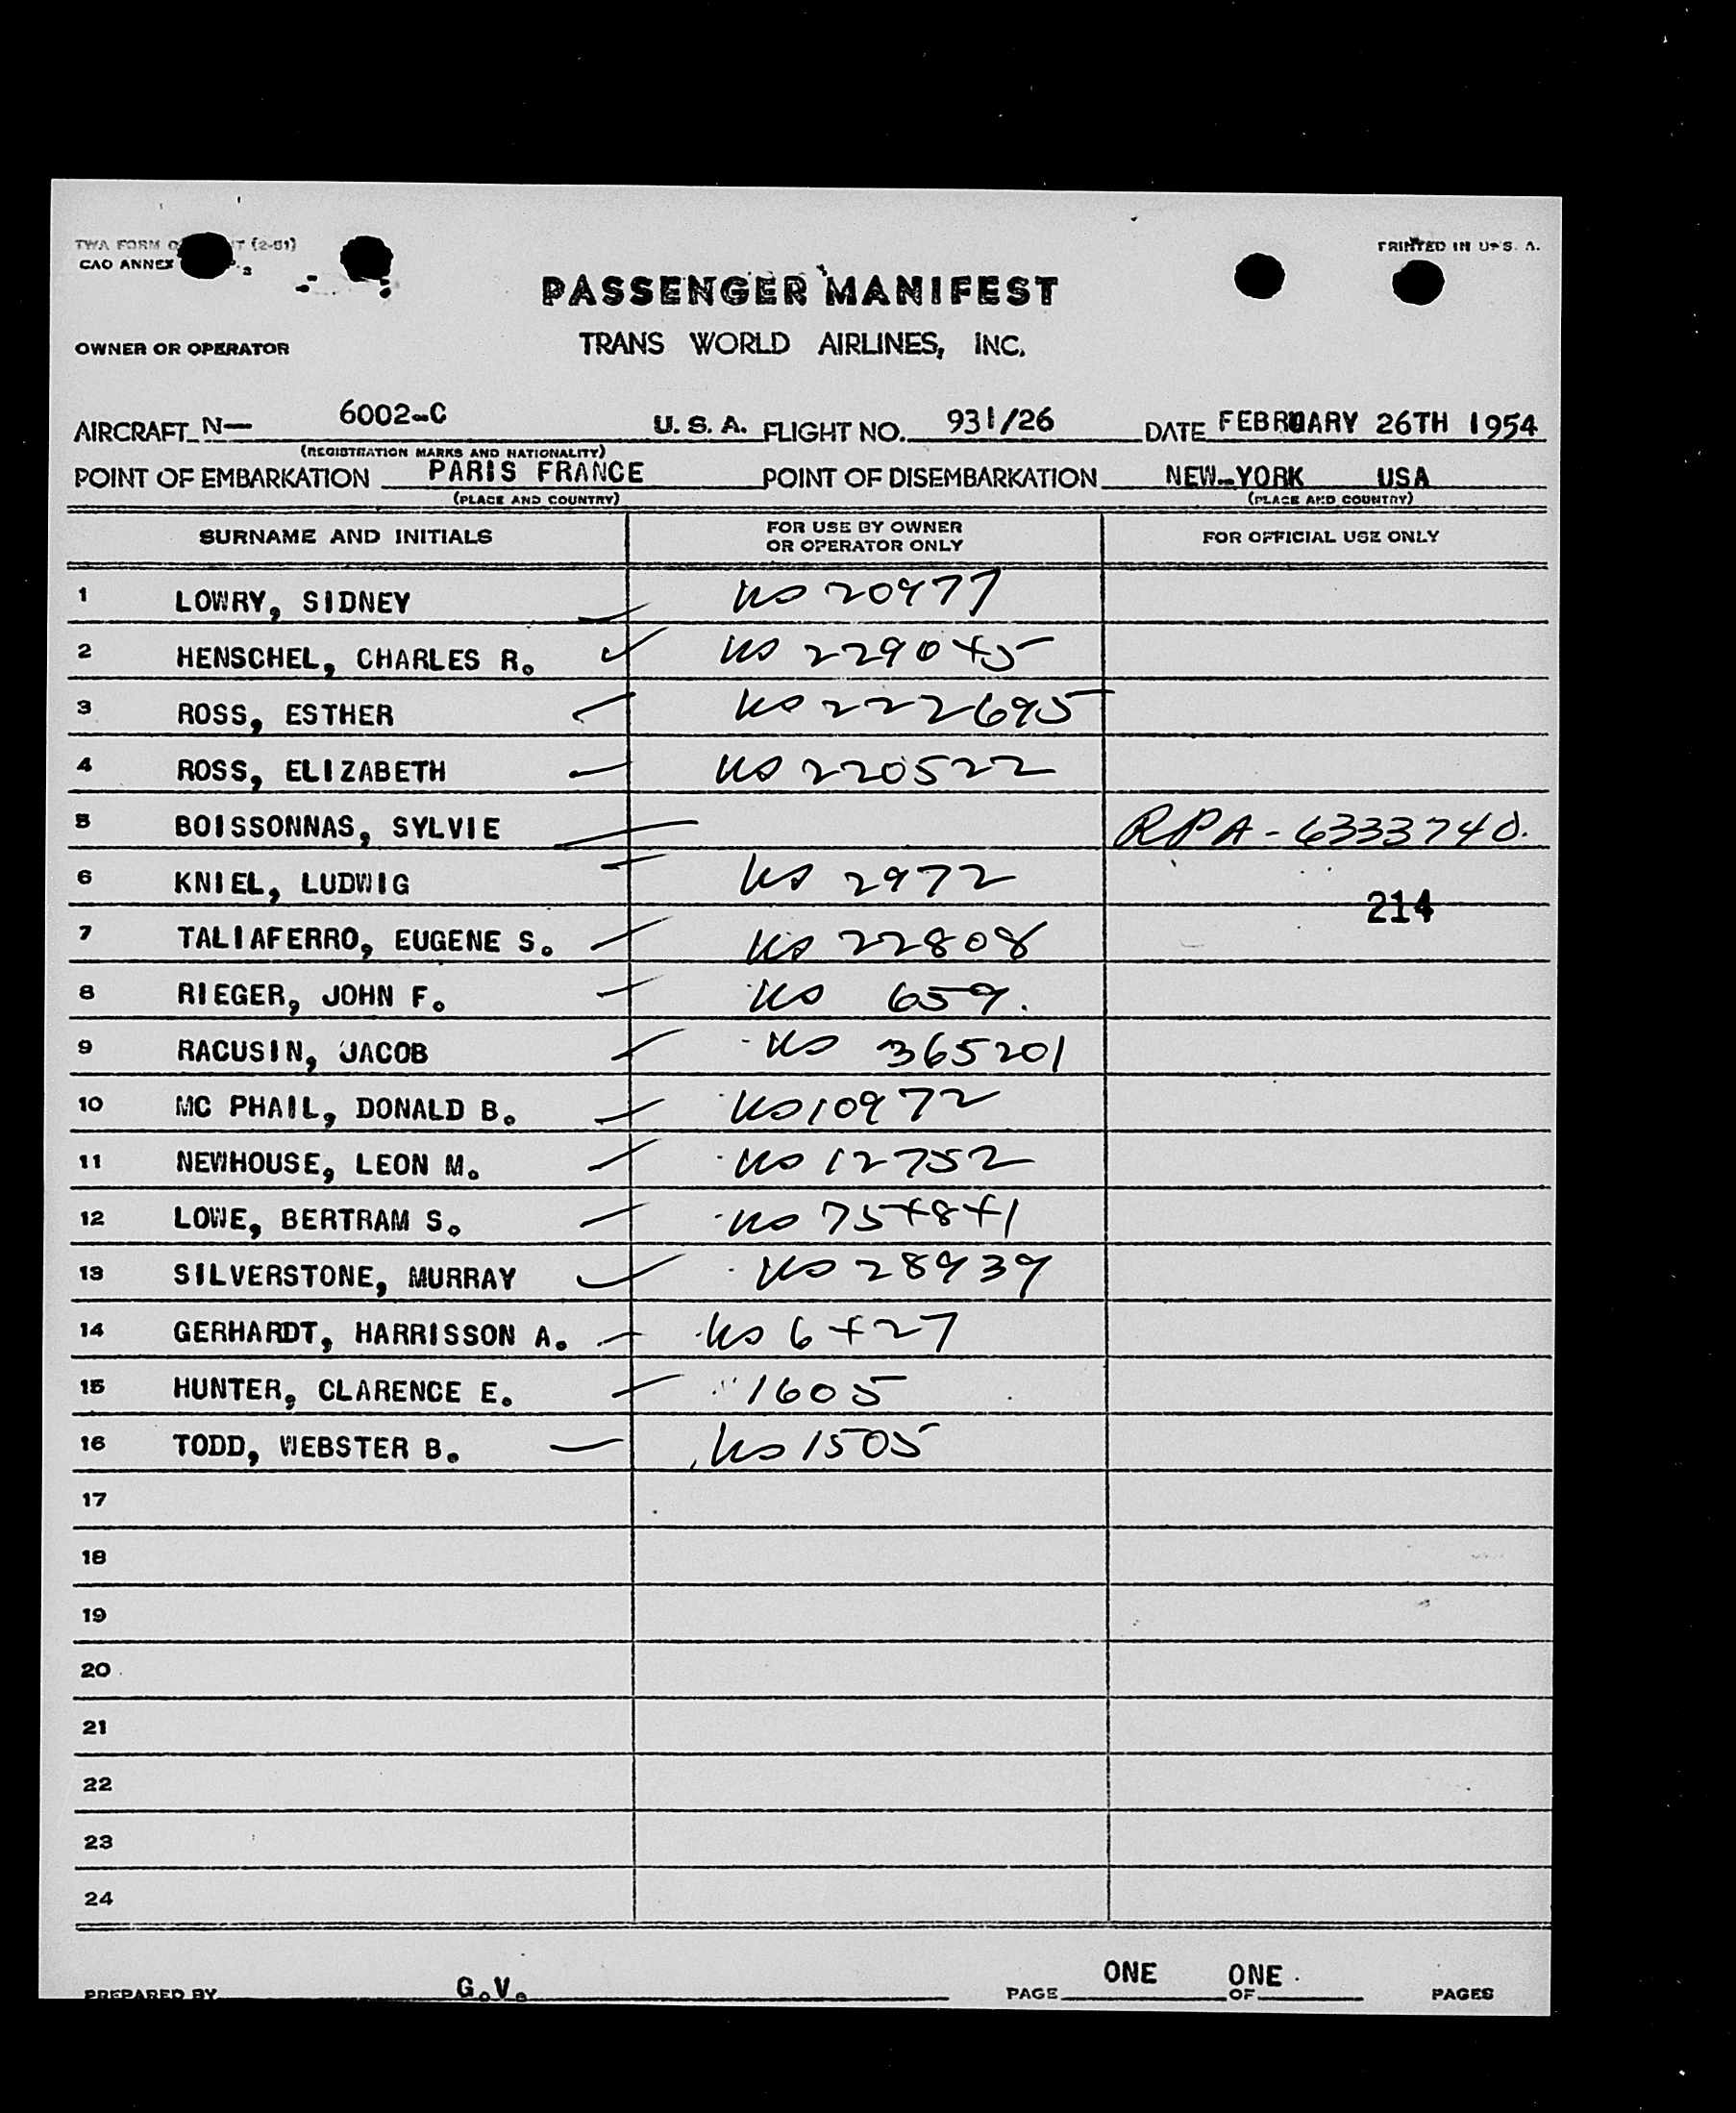 TWA FORM (2-51)
CAO ANNEX
PRINTED IN U.S.A.
PASSENGER MANIFEST
OWNER OR OPERATOR TRANS WORLD AIRLINES, INC.
AIRCRAFT N— 6002-C U.S.A. FLIGHT NO. 931/26 DATE FEBRUARY 26TH 1954
(REGISTRATION MARKS AND NATIONALITY)
POINT OF EMBARKATION PARIS FRANCE POINT OF DISEMBARKATION NEW-YORK USA
(PLACE AND COUNTRY) (PLACE AND COUNTRY)
SURNAME AND INITIALS FOR USE BY OWNER OR OPERATOR ONLY FOR OFFICIAL USE ONLY
1 LOWRY, SIDNEY US 20977
2 HENSCHEL, CHARLES R. US 229045
3 ROSS, ESTHER US 222695
4 ROSS, ELIZABETH US 220522
5 BOISSONNAS, SYLVIE RPA-6333740.
6 KNIEL, LUDWIG US 2972
214
7 TALIAFERRO, EUGENE S. US 22808
8 RIEGER, JOHN F. US 659.
9 RACUSIN, JACOB US 365201
10 MC PHAIL, DONALD B. US 10972
11 NEWHOUSE, LEON M. US 12752
12 LOWE, BERTRAM S. US 754841
13 SILVERSTONE, MURRAY US 28939
14 GERHARDT, HARRISSON A. US 6427
15 HUNTER, CLARENCE E. " 1605
16 TODD, WEBSTER B. US 1505
17
18
19
20
21
22
23
24
PREPARED BY G.V. PAGE ONE OF ONE PAGES